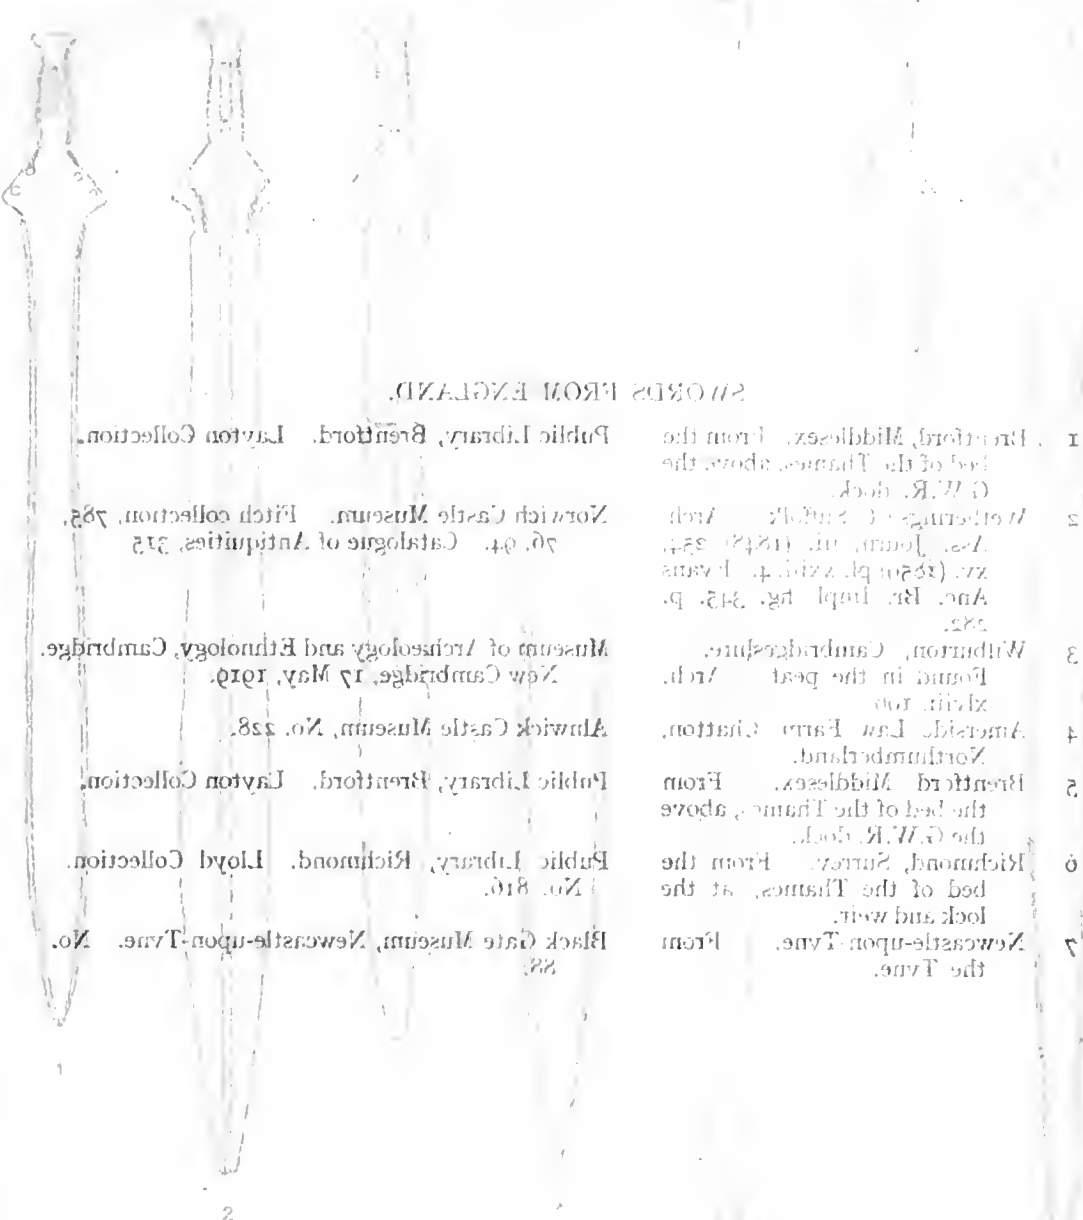 SWORDS FROM ENGLAND.
1 Brentford, Middlesex. From the
bed of the Thames, above the
G.W.R. dock.
Public Library, Brentford. Layton Collection.
2 Suffolk Arch.
Ass. Journ. iii. (1848) 254;
xv. pl. 4. Evans
Anc. Br. Impl. fig. 345. p.
282.
Norwich Castle Museum. Fitch collection, 785,
76. 94. Catalogue of Antiquities, 315
3 Wilburton, Cambridgeshire.
Found in the peat Arch.
xlviii.
Museum of Archæology and Ethnology, Cambridge.
New Cambridge, 17 May, 1919.
4 Amerside Law Farm Chatton,
Northumberland.
Alnwick Castle Museum, No. 228.
5 Brentford Middlesex. From
the bed of the Thames, above
the G.W.R. dock.
Public Library, Brentford. Layton Collection.
6 Richmond, Surrey. From the
bed of the Thames, at the
lock and weir.
Public Library, Richmond. Lloyd Collection.
No. 816.
7 Newcastle-upon-Tyne. From
the Tyne.
Black Gate Museum, Newcastle-upon-Tyne. No.
88.
1
2